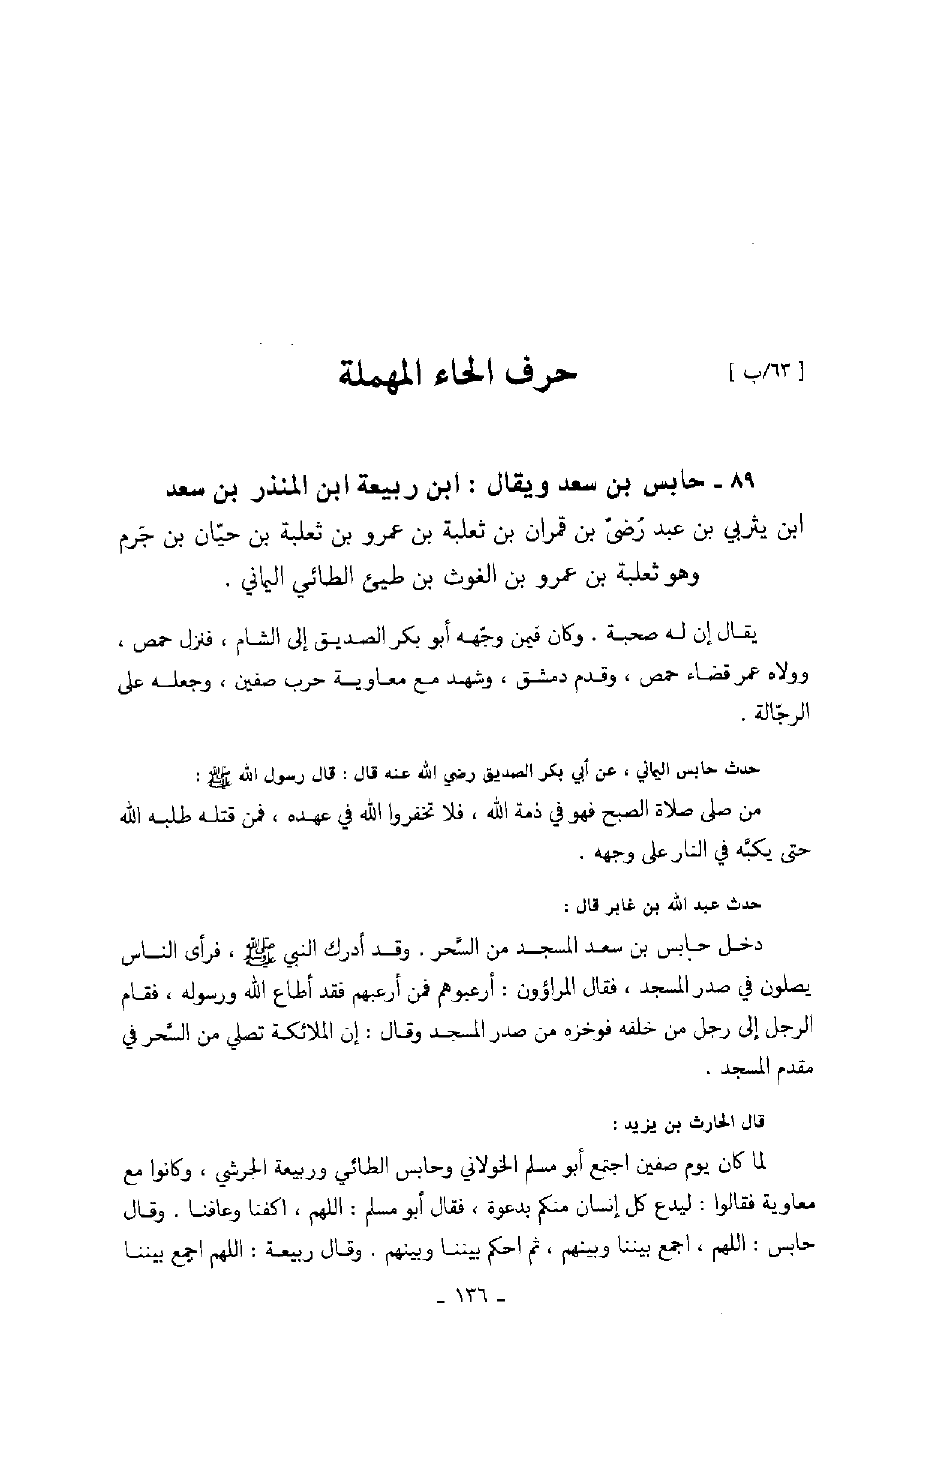 [ ٦٣/ب ] حرف الحاء المهملة
٨٩ ـ حابس بن سعد ويقال : ابن ربيعة ابن المنذر بن سعد
ابن يثربي بن عبد رُضىّ بن قمران بن ثعلبة بن عمرو بن ثعلبة بن حيّان بن جَرم
وهو ثعلبة بن عمرو بن الغوث بن طيئ الطائي اليماني .
يقال إن له صحبة . وكان فيمن وجّهه أبو بكر الصديق إلى الشام ، فنزل حمص ،
وولاه عمر قضاء حمص ، وقدم دمشق ، وشهد مع معاوية حرب صفين ، وجعله على
الرجّالة .
حدث حابس اليماني ، عن أبي بكر الصديق رضي الله عنه قال : قال رسول الله ﷺ :
من صلى صلاة الصبح فهو في ذمة الله ، فلا تخفروا الله في عهده ، فمن قتله طلبه الله
حتى يكبَّه في النار على وجهه .
حدث عبد الله بن غابر قال :
دخل حابس بن سعد المسجد من السَّحر . وقد أدرك النبي ﷺ ، فرأى الناس
يصلون في صدر المسجد ، فقال المراؤون : أرعبوهم فمن أرعبهم فقد أطاع الله ورسوله ، فقام
الرجل إلى رجل من خلفه فوخزه من صدر المسجد وقال : إن الملائكة تصلي من السَّحر في
مقدم المسجد .
قال الحارث بن يزيد :
لما كان يوم صفين اجتمع أبو مسلم الخولاني وحابس الطائي وربيعة الجرشي ، وكانوا مع
معاوية فقالوا : ليدع كل إنسان منكم بدعوة ، فقال أبو مسلم : اللهم ، اكفنا وعافنا . وقال
حابس : اللهم ، اجمع بيننا وبينهم ، ثم احكم بيننا وبينهم . وقال ربيعة : اللهم اجمع بيننا
ـ ١٣٦ ـ